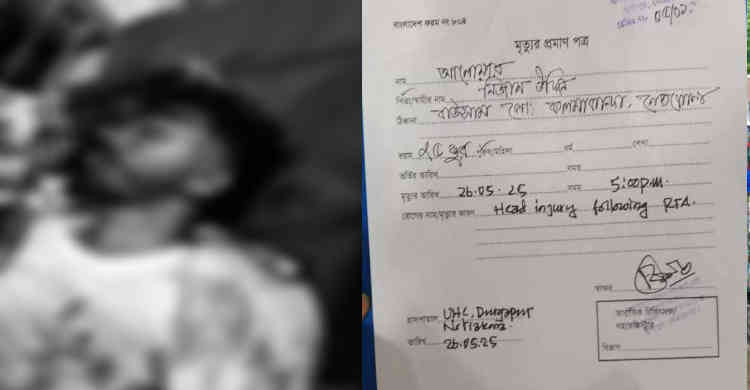 বাংলাদেশ ফরম নং ৮০৪
মৃত্যুর প্রমাণ পত্র
নাম আনোয়ার
পিতা/স্বামীর নাম নিজাম উদ্দিন
ঠিকানা পো: কলমাকান্দা, নেত্রকোনা
বয়স ধর্ম পেশা
ভর্তির তারিখ সময়
মৃত্যুর তারিখ 26.05.25 সময় 5:00 p.m.
রোগের নাম/মৃত্যুর কারণ Head injury following RTA.
স্বাক্ষর
হাসপাতাল UHC, Durgapur
Netrakona.
তারিখ 26.05.25
বিভাগ